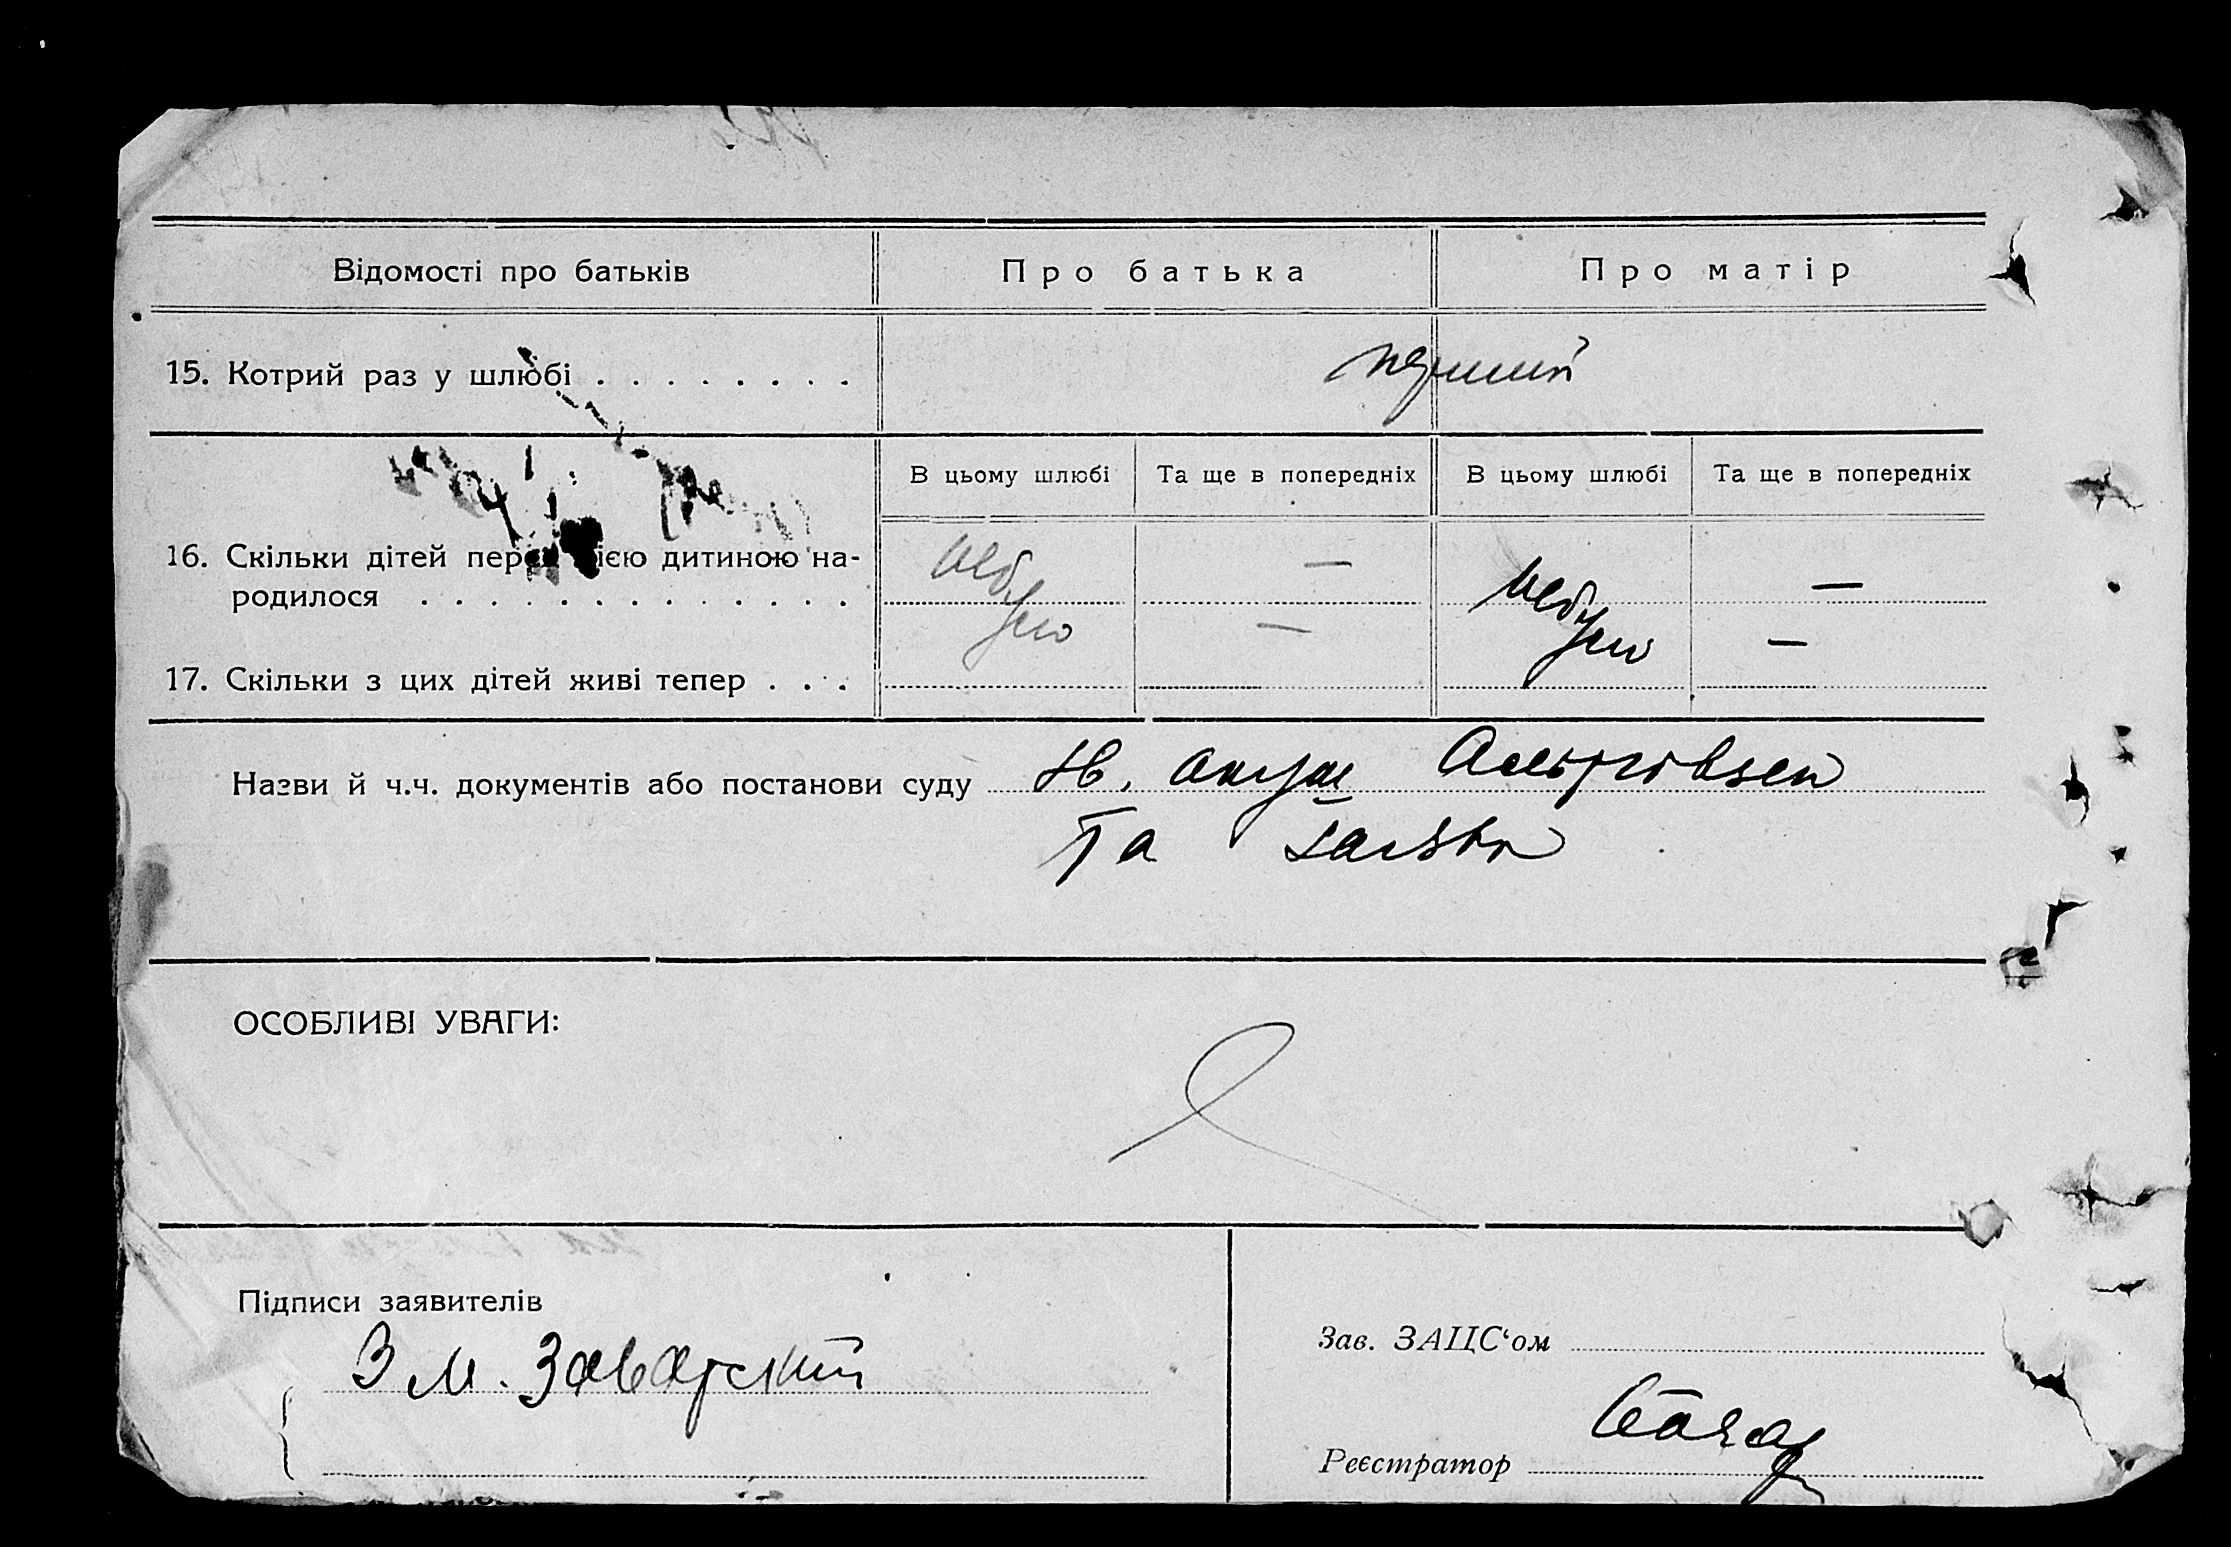 Відомості про батьків
Про батька
Про матір
15. Котрий раз у шлюбі . . . . . . . .
перший
В цьому шлюбі
Та ще в попередніх
В цьому шлюбі
Та ще в попередніх
16. Скільки дітей дитиною на-
родилося . . . . . . . . . . . . .
не було
—
не було
—
17. Скільки з цих дітей живі тепер . . .
—
—
Назви й ч.ч. документів або постанови суду
та
ОСОБЛИВІ УВАГИ:
Підписи заявителів
Зав. ЗАЦС‘ом
Реєстратор